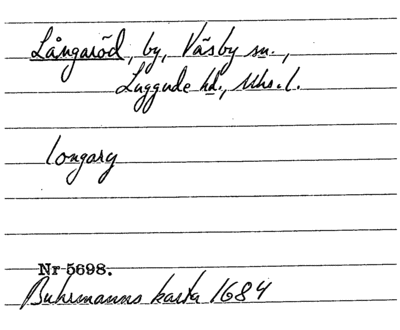 Långaröd, by, Väsby sn.,
Luggude hd., Mhs. l.
longary
Nr 5698.
Buhrmanns karta 1684